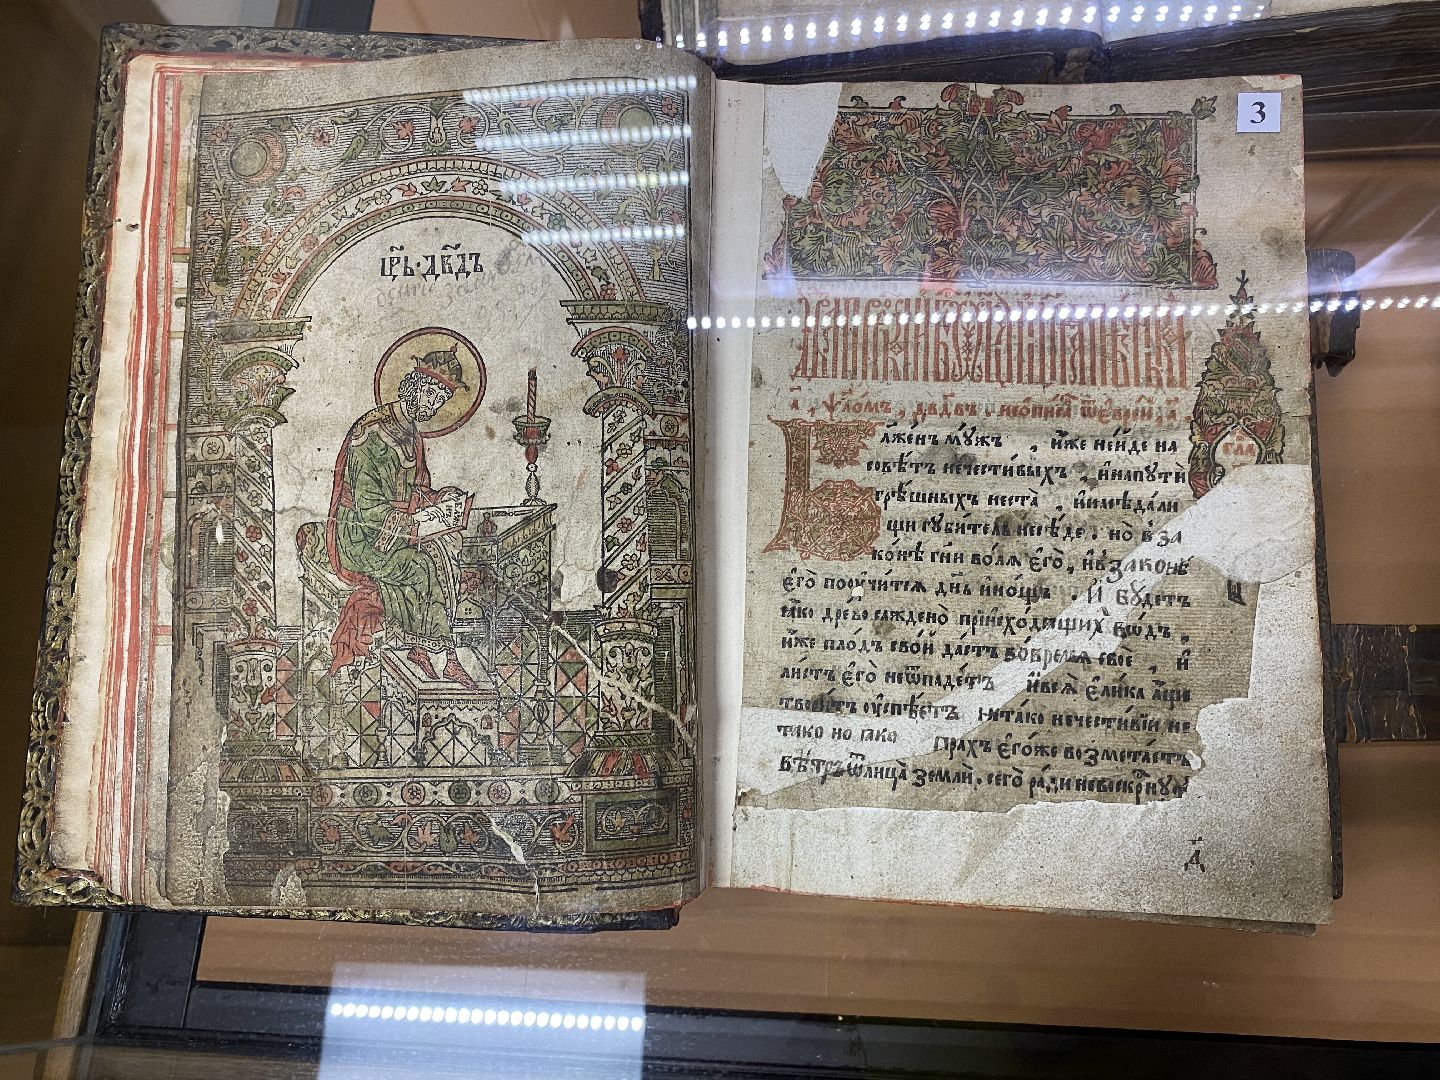 цр҃ь · дв҃дъ
3
а҃, ѱало́мъ, дв҃дв, непи́са ѿ евре́й,
Б
ла́женъ мꙋ́жъ, и҆́же не и҆́де на
совѣ́тъ нечести́выхъ, и҆ на пꙋтѝ
грѣ́шныхъ не ста̀, и҆ на сѣда́ли
щи гꙋби́тель не сѣ́де. но в за
ко́нѣ гн҃и во́лѧ є҆го̀, и҆ в зако́нѣ
є҆го̀ поꙋчи́тсѧ дн҃ь и҆ но́щь. И҆ бꙋ́детъ
ꙗ҆́ко дре́во сажде́но при и҆схо́дѧщихъ во́дъ,
и҆́же пло́дъ сво́й да́стъ во́ времѧ своѐ, и҆
ли́стъ є҆го̀ не ѿпаде́тъ и҆ всѧ̀ є҆ли́ка а҆́ще
твори́тъ ᲂу҆спѣ́етъ не та́ко нечести́вїи не
тако но ꙗко прахъ є҆го́же возмета́етъ
вѣ́тръ ѿ лица̀ землѝ. сего̀ ра́ди не воскрⷭ҇нꙋ
д҃